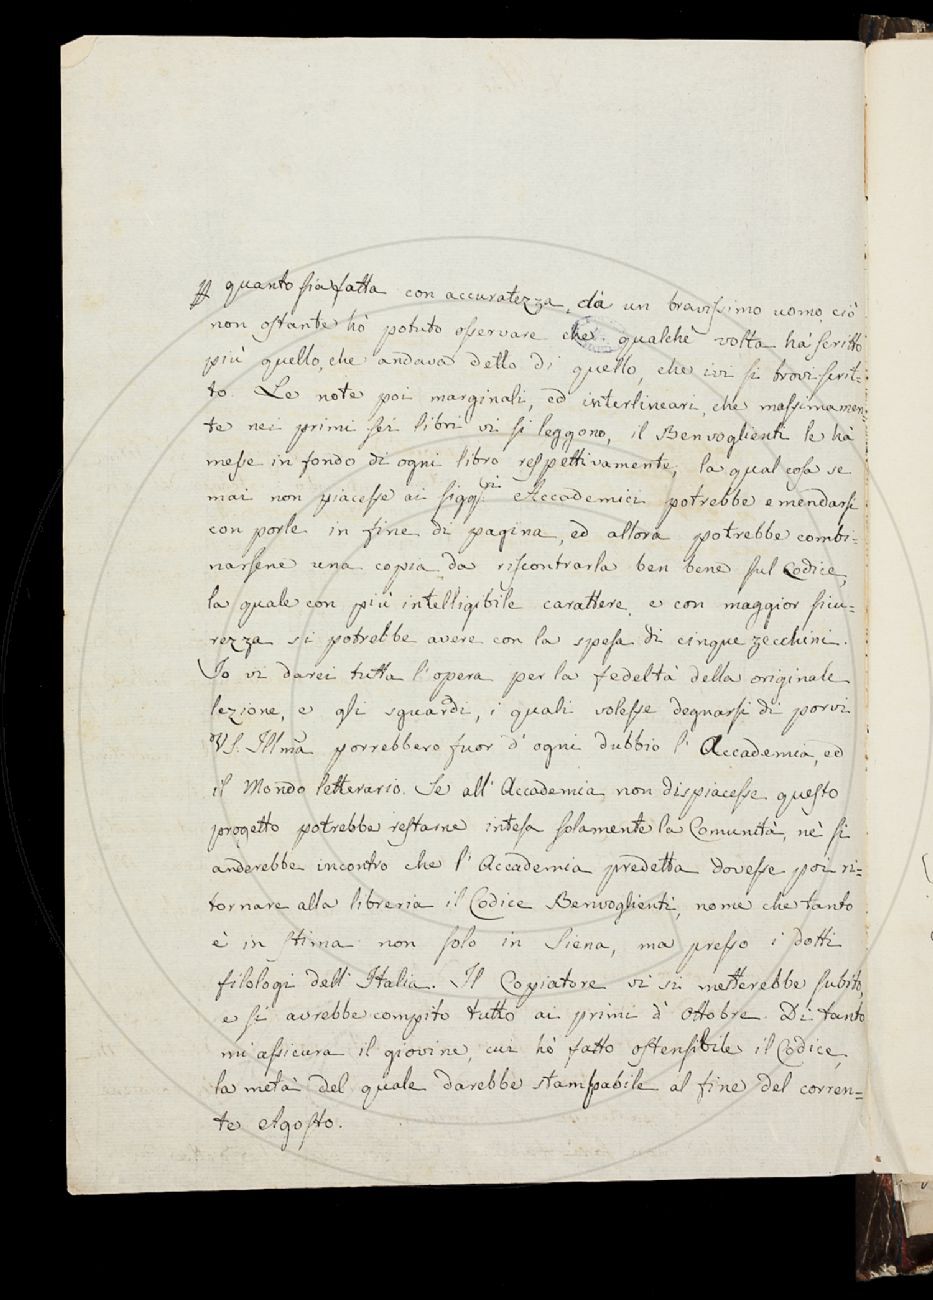 ₽ quanto sia fatta con accuratezza, dà un bravissimo uomo, ciò
non ostante hò potuto osservare che qualchè volta hà scritto
più quello, che andava detto di quello, che ivi si trovi scrit=
to. Le note poi marginali, ed interlineari, che massimamen=
te nei primi sei libri vi si leggono, il Benvoglienti le hà
messe in fondo di ogni libro respettivamente; la qual cosa se
mai non piacesse ai Sigg:ri Accademici potrebbe emendarsi
con porle in fine di pagina, ed allora potrebbe combi=
narsene una copia da riscontrarla ben bene sul Codice,
la quale con più intelligibile carattere, e con maggior sicu=
rezza si potrebbe avere con la spesa di cinque zecchini.
Io vi darei tutta l'opera per la fedeltà della originale
lezione, e gli sguardi, i quali volesse degnarsi di porvi
VS. Illma porrebbero fuor d'ogni dubbio l'Accademia, ed
il Mondo letterario. Se all'Accademia non dispiacesse questo
progetto potrebbe restarne intesa solamente la Comunità, nè si
anderebbe incontro che l'Accademia predetta dovesse poi ri=
tornare alla libreria il Codice Benvoglienti, nome che tanto
è in stima non solo in Siena, ma presso i dotti
filologi dell'Italia. Il Copiatore vi si metterebbe subito,
e si avrebbe compito tutto ai primi d'Ottobre. Di tanto
mi assicura il giovine, cui hò fatto ostensibile il Codice,
la metà del quale darebbe stampabile al fine del corren=
te Agosto.